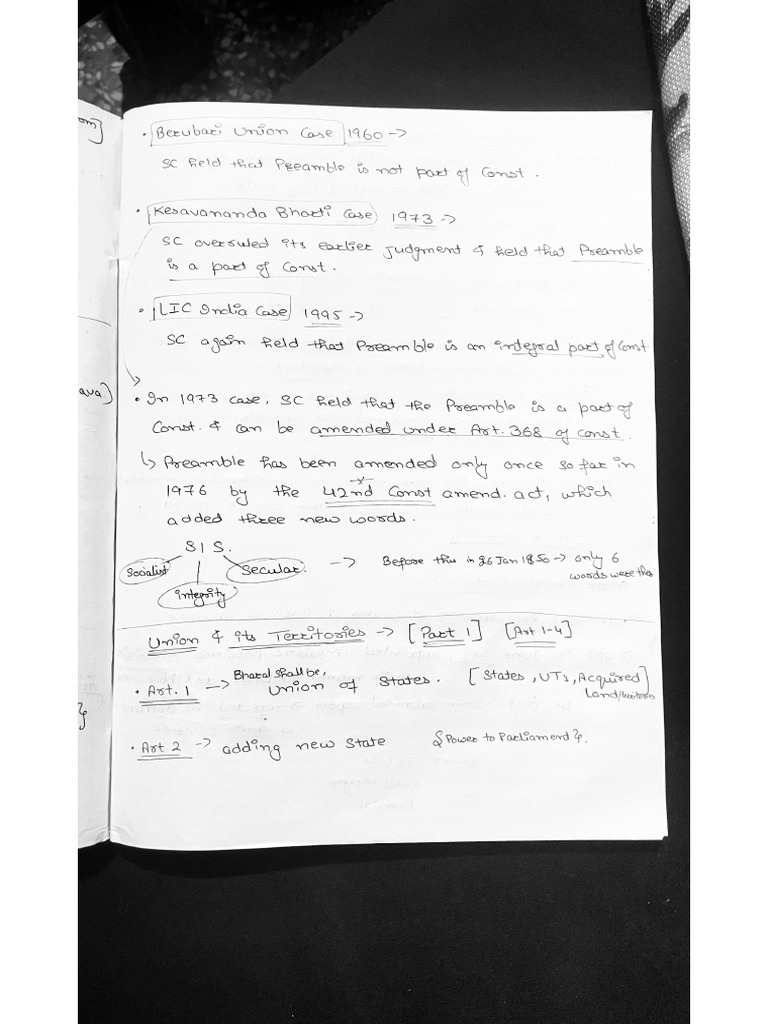 om]
• Berubari Union Case 1960 ->
SC held that Preamble is not part of Const.
• Kesavananda Bharti Case 1973 ->
SC overruled its earlier judgment & held that Preamble
is a part of Const.
• LIC India Case 1995 ->
SC again held that Preamble is an integral part of Const
ava)
• In 1973 case, SC held that the Preamble is a part of
Const. & can be amended under Art. 368 of const.
↳ Preamble has been amended only once so far in
1976 by the 42nd Const amend. act, which
added three new words.
S I S.
Socialist
Secular.
integrity
-> Before this in 26 Jan 1850 -> only 6
words were the
Union & its Territories -> [Part 1] [Art 1-4]
• Art. 1 -> Bharat shall be, Union of States. [States, UTs, Acquired]
Land/
• Art 2 -> adding new state {Power to Parliament}.